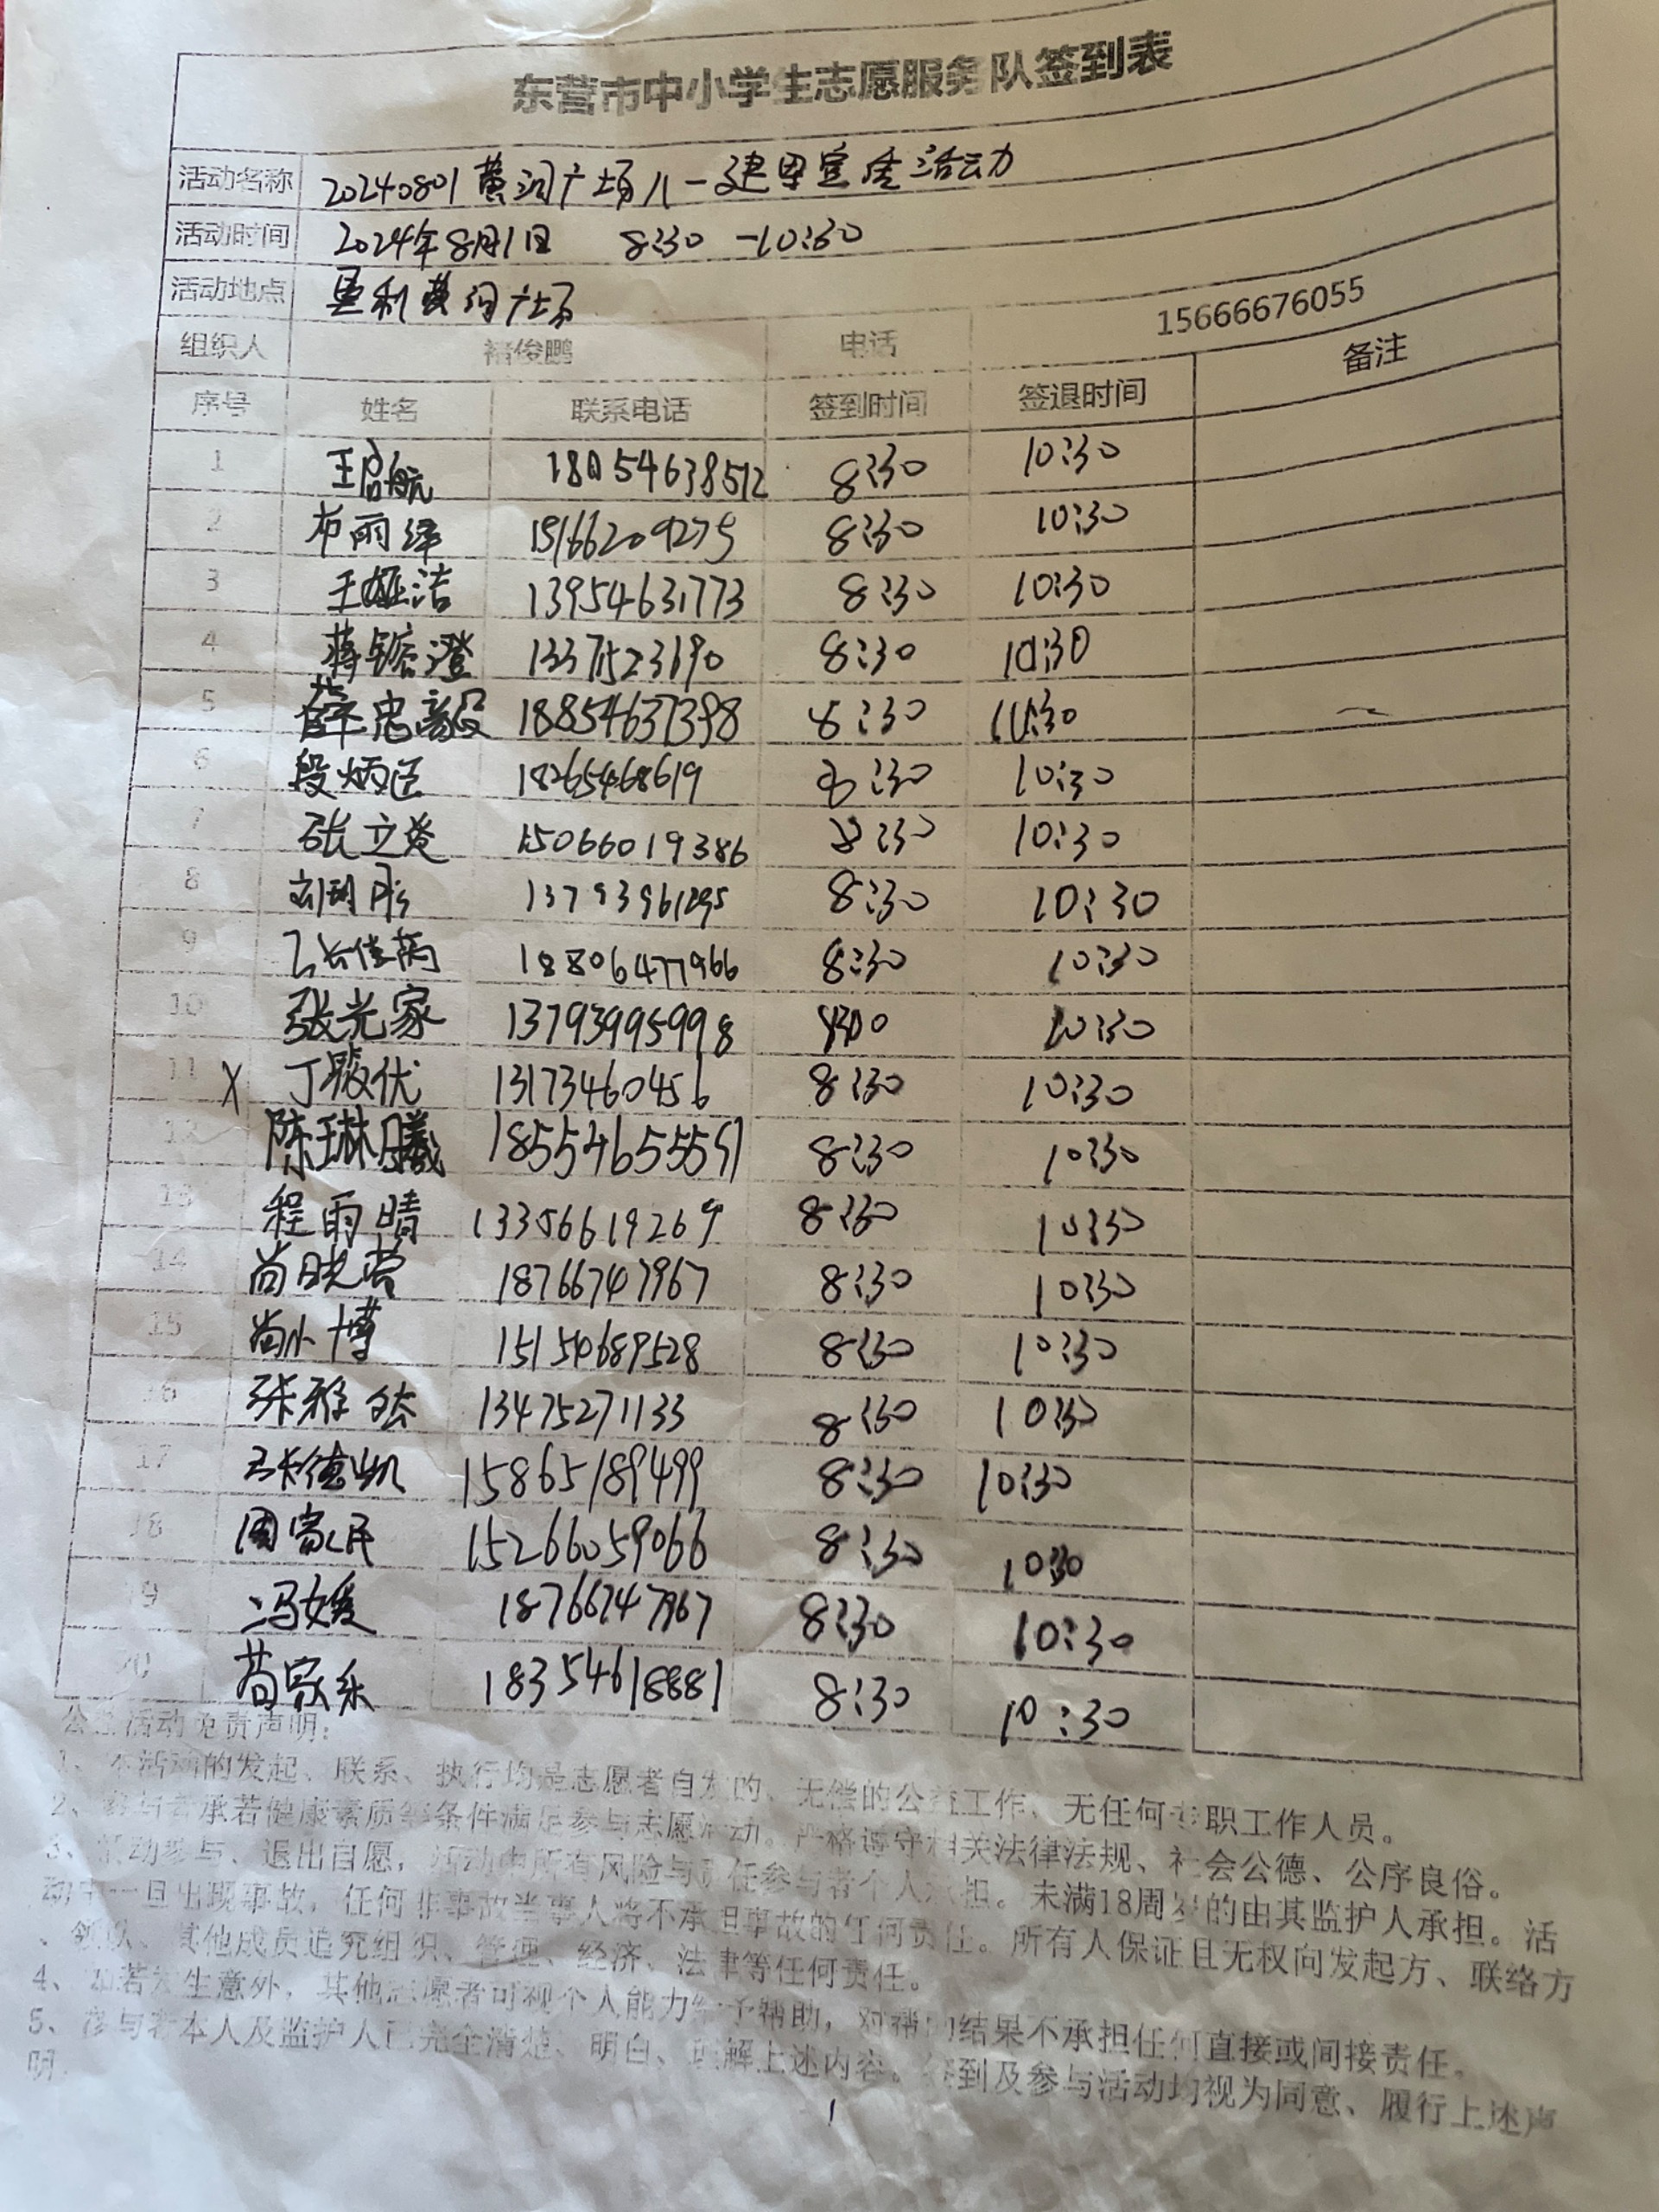 东营市中小学生志愿服务队签到表
活动名称 20240801黄河广场八一建军宣传活动
活动时间 2024年8月1日 8:30 -10:30
活动地点 垦利黄河广场
组织人 褚俊鹏 电话 15666676055
序号 姓名 联系电话 签到时间 签退时间 备注
1 王启航 18054638512 8:30 10:30
2 布雨泽 15166209275 8:30 10:30
3 王娅洁 13954631773 8:30 10:30
4 蒋镕澄 13371523690 8:30 10:30
5 薛忠毅 18854637398 8:30 10:30
6 段炳 18265468619 8:30 10:30
7 张立 15066019386 8:30 10:30
8 刘 13793961295 8:30 10:30
9 张佳茜 18806477966 8:30 10:30
10 张光家 13793995998 10:30
11 X 丁骏优 13173460456 8:30 10:30
12 陈琳曦 18554655551 8:30 10:30
13 程雨晴 13356619269 8:30 10:30
14 尚晓营 18766747967 8:30 10:30
15 尚小博 151540689528 8:30 10:30
16 张雅 13475271133 8:30 10:30
17 张德凯 15865189499 8:30 10:30
18 周家民 15266059066 8:30 10:30
19 冯媛 18766747967 8:30 10:30
20 苟家乐 18354618881 8:30 10:30
公益活动免责声明：
1、本活动的发起、联系、执行均是志愿者自发的、无偿的公益工作、无任何专职工作人员。
2、参与者承若健康素质等条件满足参与志愿活动。严格遵守相关法律法规、社会公德、公序良俗。
3、活动参与、退出自愿，活动中所有风险与责任参与者个人承担。未满18周岁的由其监护人承担。活
动中一旦出现事故，任何非事故当事人将不承担事故的任何责任。所有人保证且无权向发起方、联络方
、领队、其他成员追究组织、管理、经济、法律等任何责任。
4、如若发生意外，其他志愿者可视个人能力给予帮助，对帮助结果不承担任何直接或间接责任。
5、参与者本人及监护人已完全清楚、明白、理解上述内容。签到及参与活动均视为同意、履行上述声
明.